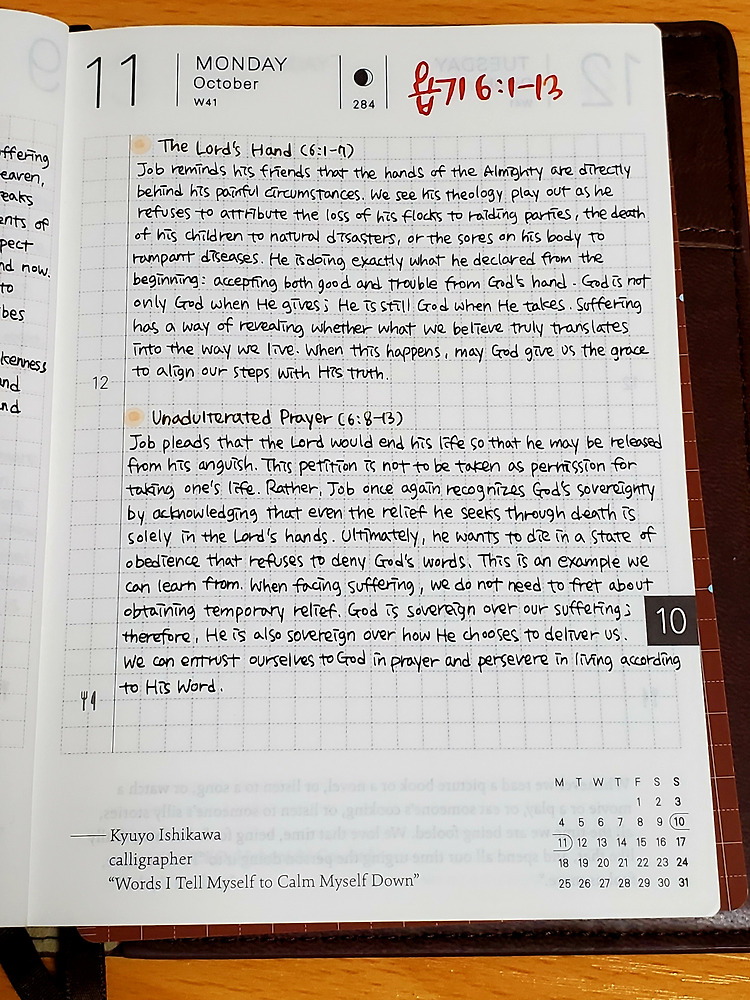 11
MONDAY
October
W41
284
욥기 6:1-13
The Lord's Hand (6:1-7)
Job reminds his friends that the hands of the Almighty are directly
behind his painful circumstances. We see his theology play out as he
refuses to attribute the loss of his flocks to raiding parties, the death
of his children to natural disasters, or the sores on his body to
rampant diseases. He is doing exactly what he declared from the
beginning: accepting both good and trouble from God's hand. God is not
only God when He gives; He is still God when He takes. Suffering
has a way of revealing whether what we believe truly translates
into the way we live. When this happens, may God give us the grace
to align our steps with His truth.
12
Unadulterated Prayer (6:8-13)
Job pleads that the Lord would end his life so that he may be released
from his anguish. This petition is not to be taken as permission for
taking one's life. Rather, Job once again recognizes God's sovereignty
by acknowledging that even the relief he seeks through death is
solely in the Lord's hands. Ultimately, he wants to die in a state of
obedience that refuses to deny God's words. This is an example we
can learn from. When facing suffering, we do not need to fret about
obtaining temporary relief. God is sovereign over our suffering;
therefore, He is also sovereign over how He chooses to deliver us.
We can entrust ourselves to God in prayer and persevere in living according
to His Word.
10
Kyuyo Ishikawa
calligrapher
"Words I Tell Myself to Calm Myself Down"
M T W T F S S
1 2 3
4 5 6 7 8 9 10
11 12 13 14 15 16 17
18 19 20 21 22 23 24
25 26 27 28 29 30 31